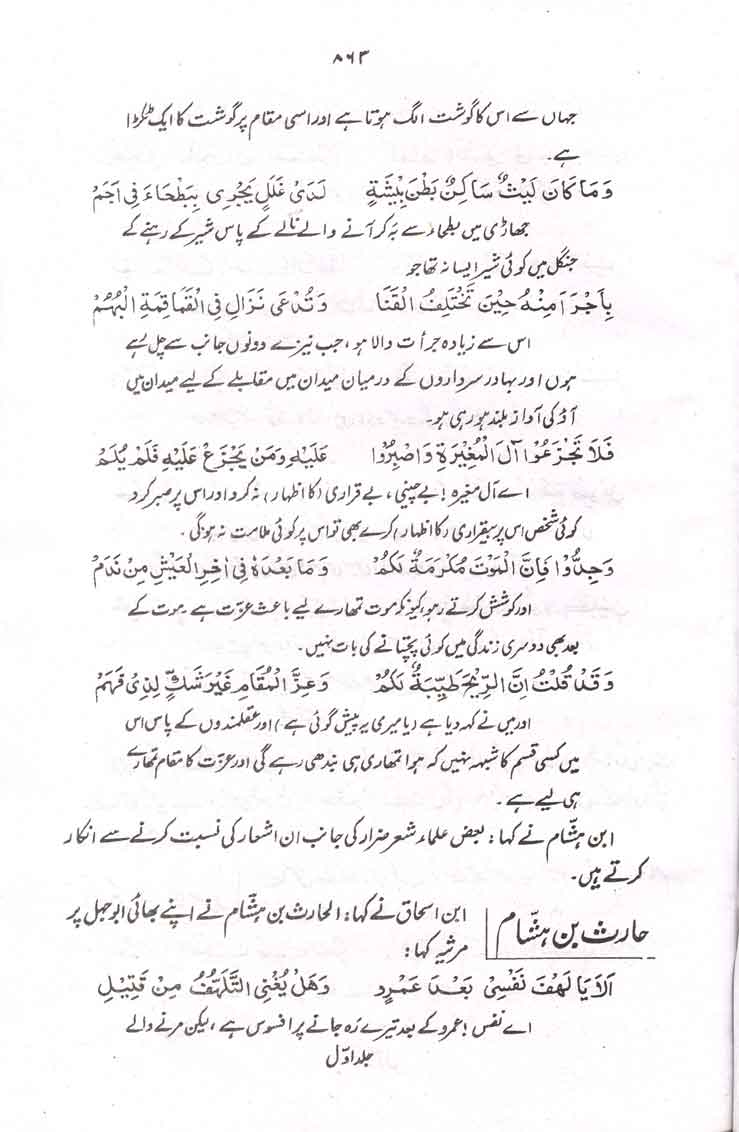 ۸۶۳
جہاں سے اس کا گوشت الگ ہوتا ہے اور اسی مقام پر گوشت کا ایک ٹکڑا
ہے۔
وَمَا كَانَ لَيْثٌ سَاكِنٌ بَطْنَ بِيْشَةٍ لَدٰى غَلَلٍ يَجْرِى بِبَطْحَاءَ فِى اَجَمْ
جھاڑی میں بطحاء سے بہ کر آنے والے نالے کے پاس شیر کے رہنے کے
جنگل میں کوئی شیر ایسا نہ تھا جو
بِاَجْرَاَ مِنْهُ حِيْنَ تَخْتَلِفُ الْقَنَا وَتُدْعٰى نَزَالِ فِى الْقَمَاقِمَةِ الْبُهَمْ
اس سے زیادہ جرأت والا ہو، جب نیزے دونوں جانب سے چل رہے
ہوں اور بہادر سرداروں کے درمیان میدان میں مقابلے کے لیے میدان میں
آؤ کی آواز بلند ہو رہی ہو۔
فَلَا تَجْزَعُوْا آلَ الْمُغِيْرَةِ وَاصْبِرُوْا عَلَيْهِ وَمَنْ يَجْزَعْ عَلَيْهِ فَلَمْ يُلَمْ
اے آل مغیرہ! بے چینی، بے قراری (کا اظہار) نہ کرو اور اس پر صبر کرو
کوئی شخص اس پر بیقراری (کا اظہار) کرے بھی تو اس پر کوئی ملامت نہ ہوگی۔
وَجِدُّوْا فَاِنَّ الْمَوْتَ مَكْرُمَةٌ لَكُمْ وَمَا بَعْدَهٗ فِى اٰخِرِ الْعَيْشِ مِنْ نَدَمْ
اور کوشش کرتے رہو کیونکہ موت تمھارے لیے باعث عزت ہے۔ موت کے
بعد بھی دوسری زندگی میں کوئی پچتانے کی بات نہیں۔
وَقَدْ قُلْتُ اِنَّ الرِّيْحَ طَيِّبَةٌ لَكُمْ وَعِزَّ الْمُقَامِ غَيْرَ شَكٍّ لِذِى فَهَمْ
اور میں نے کہہ دیا ہے (یا میری یہ پیش گوئی ہے) اور عقلمندوں کے پاس اس
میں کسی قسم کا شبہہ نہیں کہ ہوا تمھاری ہی بندھی رہے گی اور عزت کا مقام تمھارے
ہی لیے ہے۔
ابن ہشّام نے کہا: بعض علماء شعر ضرار کی جانب ان اشعار کی نسبت کرنے سے انکار
کرتے ہیں۔
حارث بن ہشّام
ابن اسحاق نے کہا: الحارث بن ہشّام نے اپنے بھائی ابو جہل پر
مرثیہ کہا:
اَلَا يَا لَهْفَ نَفْسِىْ بَعْدَ عَمْرٍو وَهَلْ يُغْنِى التَّلَهُّفُ مِنْ قَتِيْلِ
اے نفس! عمرو کے بعد تیرے رہ جانے پر افسوس ہے، لیکن مرنے والے
جلد اوّل